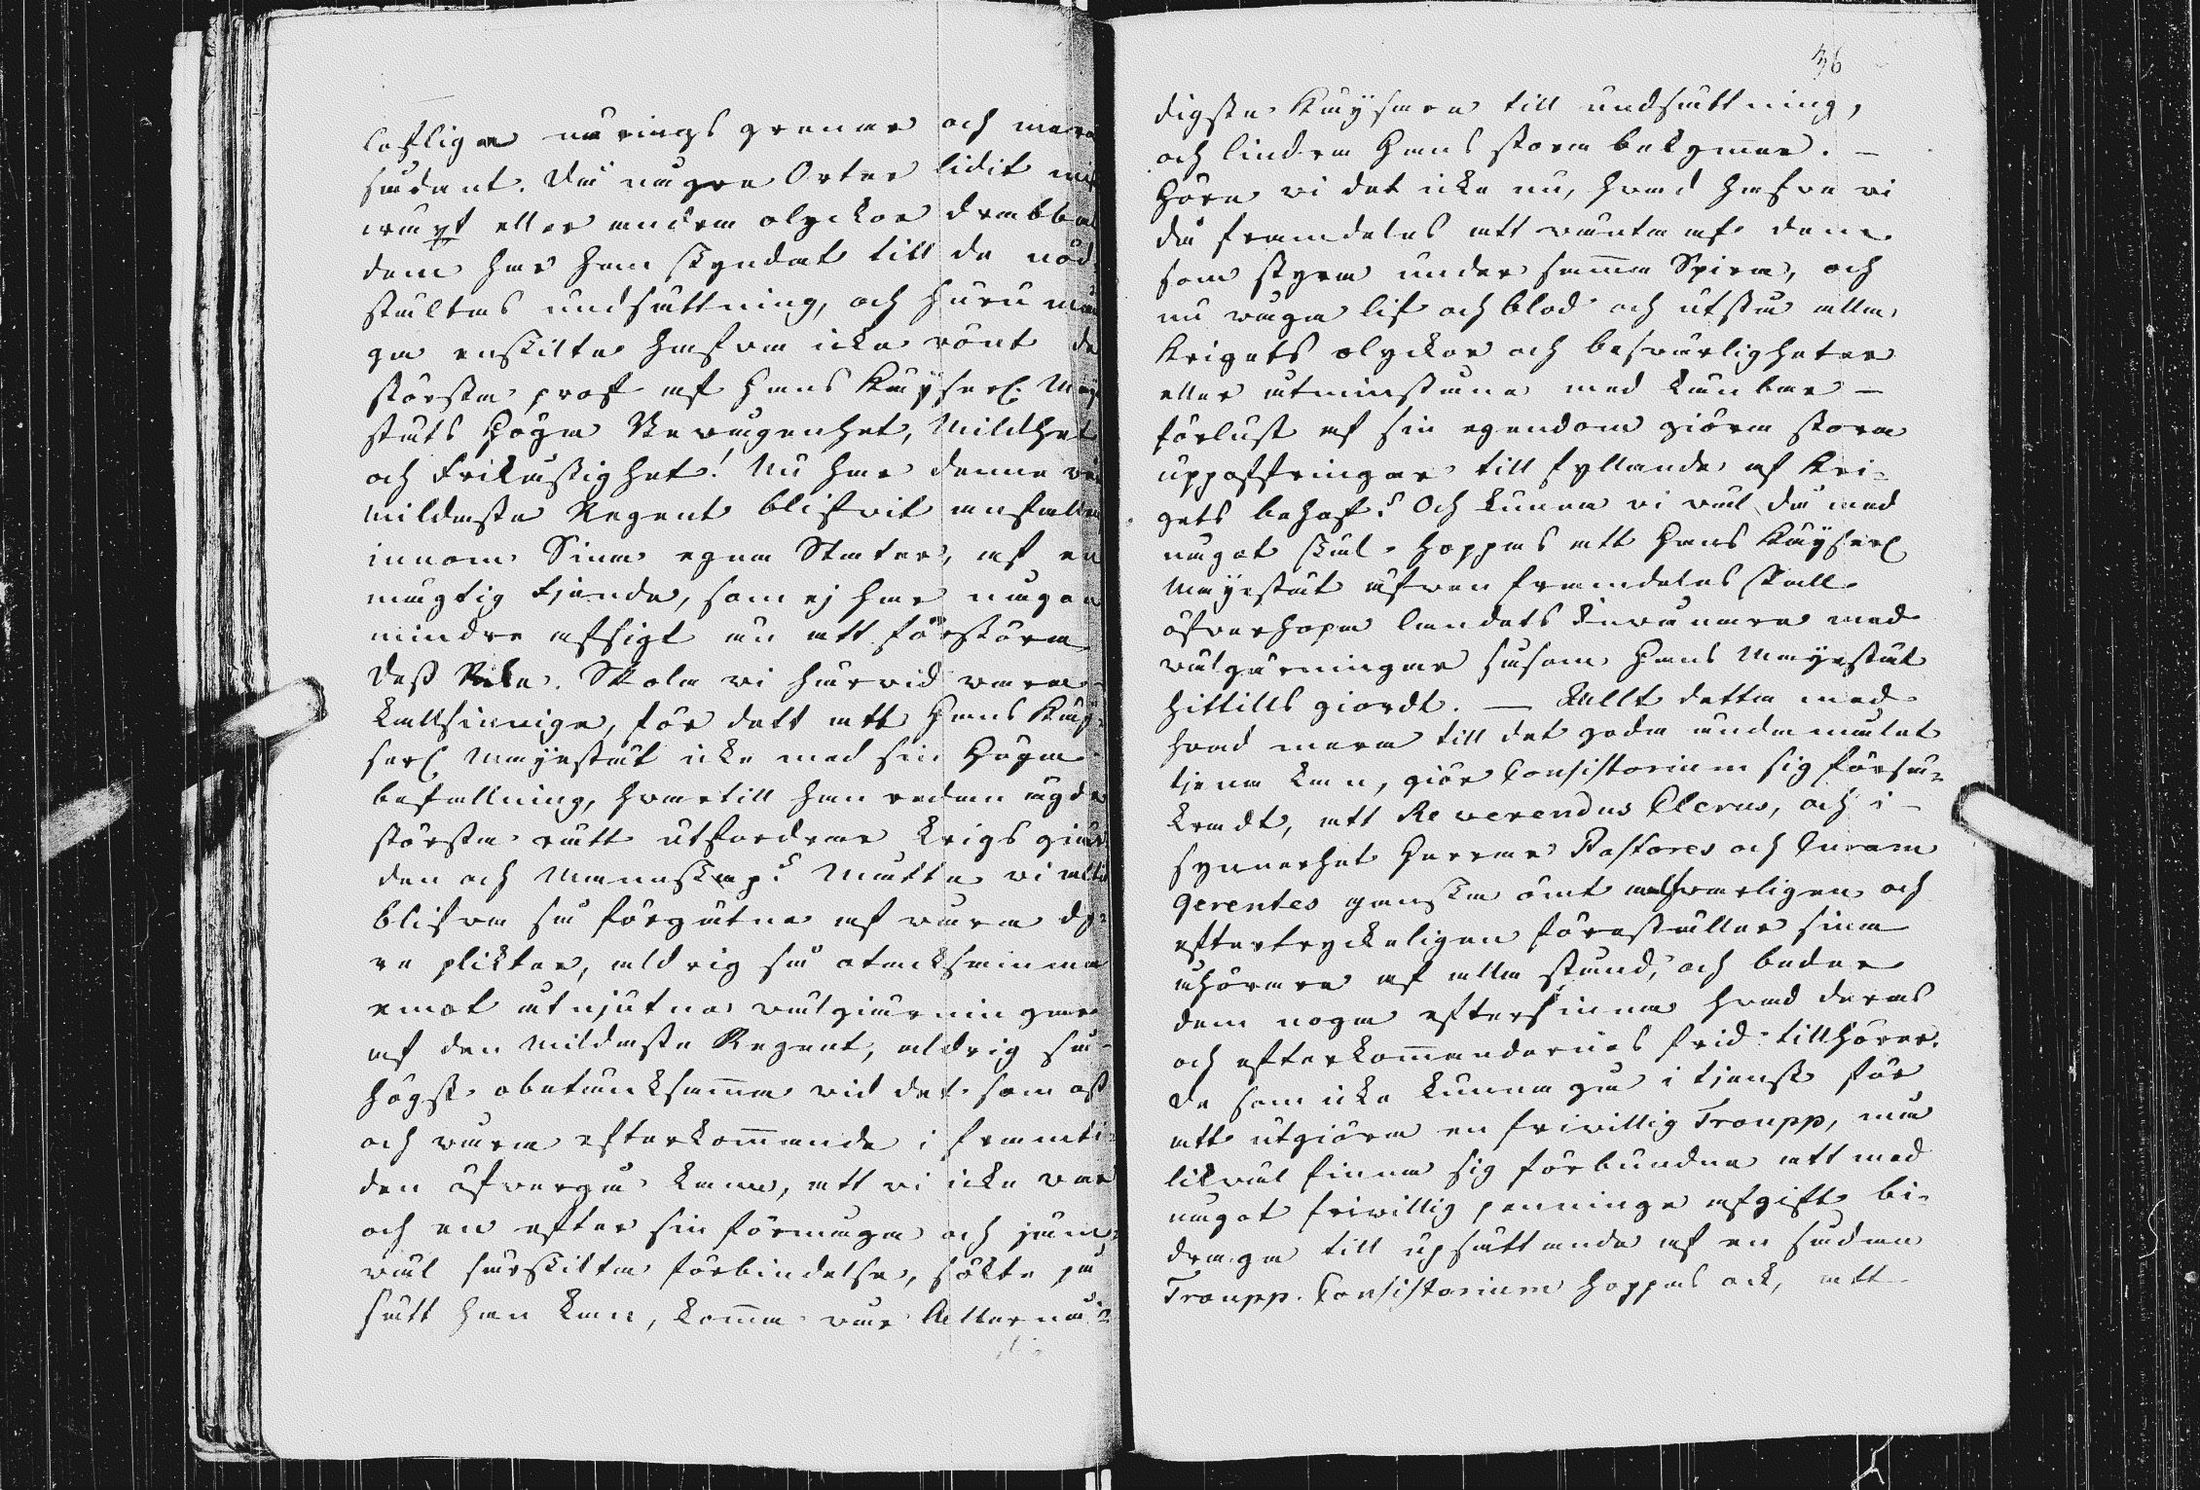 lofliga närings grenar och mera
sådant. Då några Orter lidit miß
wäxt eller andra olyckor drabbat
dem har han skyndat till de nöd
stältas undsättning, och huru mån
ga enskilta hafva icke rönt de
största prof af Hans Kayserl. May
stäts Höga Bewågenhet, Mildhet
och Frikåstighet! Nu har denne vår
mildaste Regent blifvit anfallen
innom Sina egna Stater, af en
mägtig fjende, som ej har någon
mindre afsigt än att förstöra
Deß Rike. Skola vi härvid vara
kallsinnige, för dett att Hans Kay-
serl Mayestät icke med sin Höga
befallning, hvartill han redan ägde
största rätt utfordrar krigs giär
den och Manskap? Måtte vi alldrig
blifva så förgätne af våra dy-
ra plikter, aldrig så otacksamma
emot åtnjutna välgiärningar
af den Mildaste Regent, aldrig så
högst obetänksamma vid det som oß
och våra efterkommande i framti-
den öfvergå kann, att vi icke var
och en efter sin förmåga och jäm-
väl särskilta förbindelse, sökte på
sätt han kan, komma vår Allernå-
36
digste Kaysare till undsättning,
och lindra Hans stora bekymmer. –
Göra vi det icke nu, hvad hafva vi
då framdeles att vänta af dem
som styra under samma Spira, och
nu våga lif och blod och utstå alla
Krigets olyckor och besvärligheter
eller åtminstone med kännbar –
förlust af sin egendom giöra stora
uppoffringar till fyllande af Kri-
gets behof? Och kunna vi väl då med
något skäl hoppas att Hans Kayserl
Mayestät äfven framdeles skall
öfverhopa landets Invånare med
välgärningar såsom Hans Mayestät
hittills giordt. — Allt detta med
hvad mera till det goda ändamålet
tjena kan, giör Consistorium sig försä-
kradt, att Reverendus Clerus, och i
synnerhet Herrar Pastores och Curam
gerentes ganska ömt allfvarligen och
eftertryckeligen föreställer sina
åhörare af alla stånd, och beder
dem noga eftersinna hvad deras
och efterkommandernas frid tillhörer.
De som icke kunna gå i tjenst för
att utgiöra en friwillig Troupp, må
likväl finna sig förbundna att med
något friwillig penninge afgift bi-
draga till upsättande af en sådan
Troupp. Consistorium hoppas ock, att